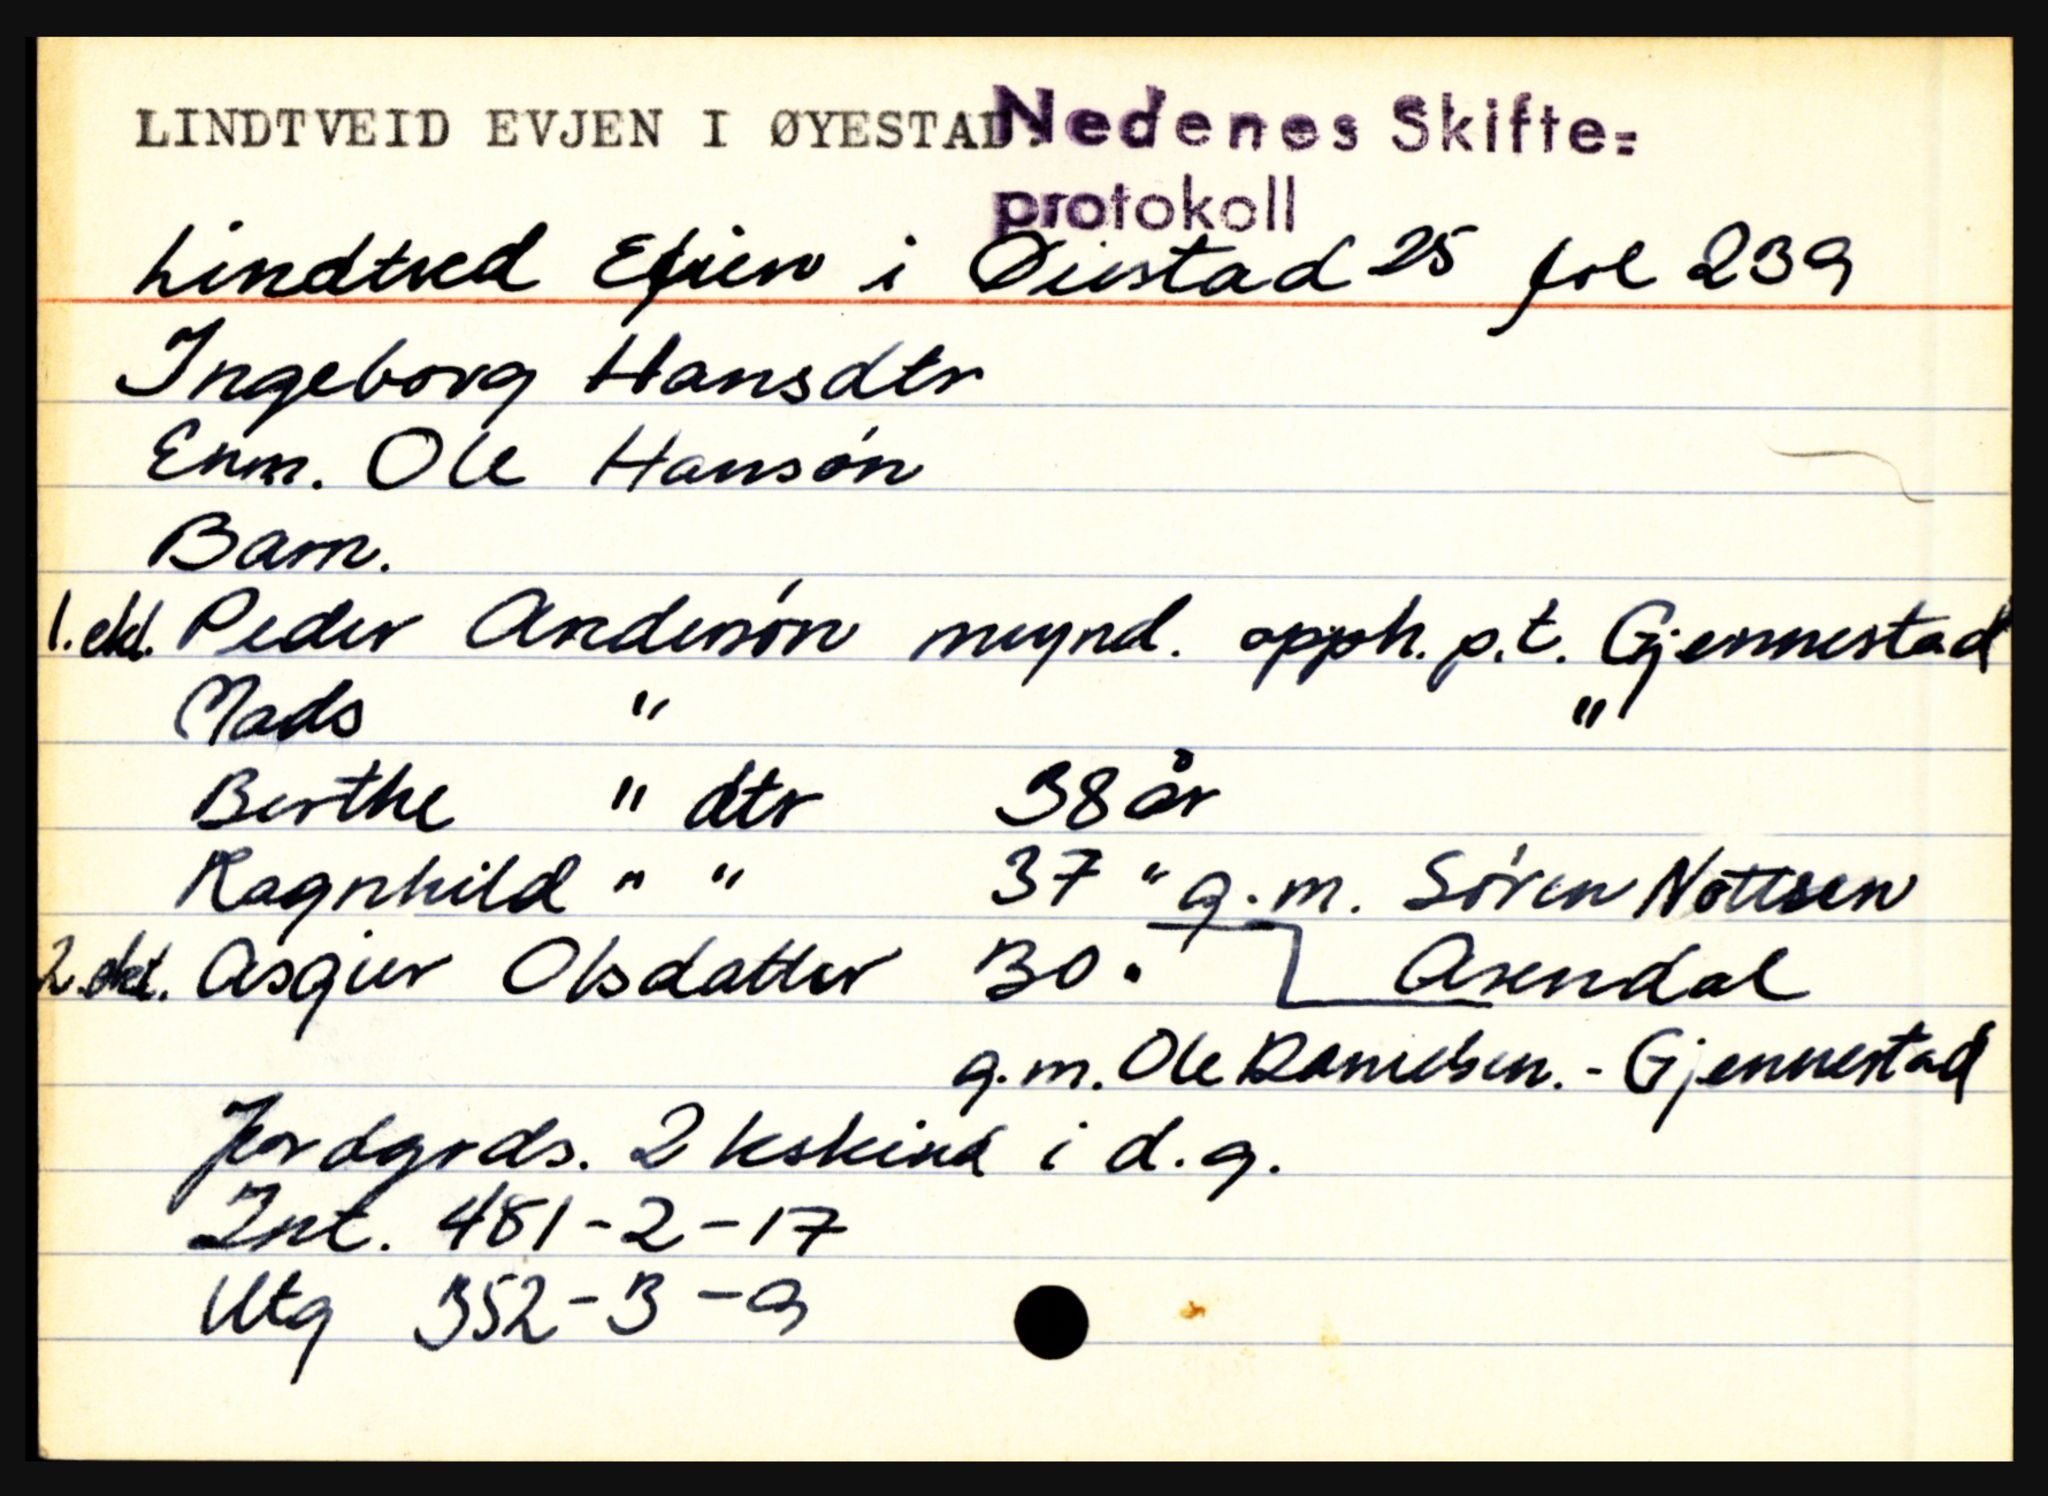 LINDTVEID EVJEN I ØYESTAD.
Nedenes Skifte=
protokoll
Lindtved Efien i Øiestad 25 fol 239
Ingeborg Hansdtr
Enm. Ole Hansón
Barn.
1. ekt. Peder Andersón mynd. opph. p.t. Gjennestad
Mads " "
Berthe " dtr 38 år
Ragnhild " " 37 " g.m. Sören Nottsen
2. ekt. Asgier Olsdatter 30 " Arendal
g.m. Ole Danielsen. - Gjennestad
Jordgods. 2 kskind i d.g.
Int. 481-2-17
Utg 352-3-9